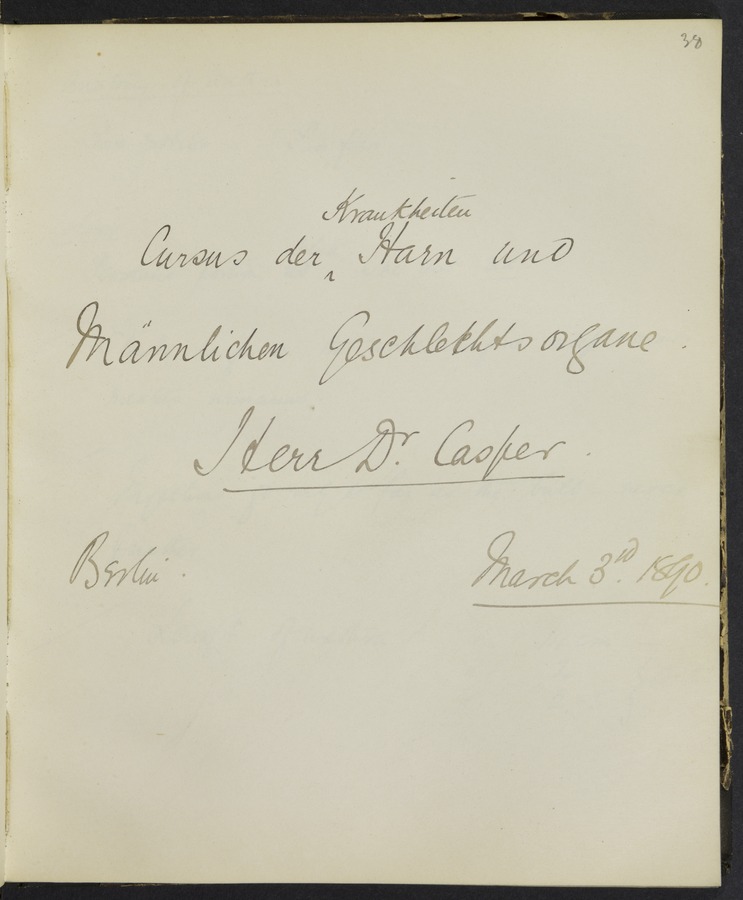 38
Krankheiten
Cursus der ‸ Harn und
Männlichen Geschlechtsorgane.
Herr Dr. Casper.
Berlin.
March 3rd. 1890.